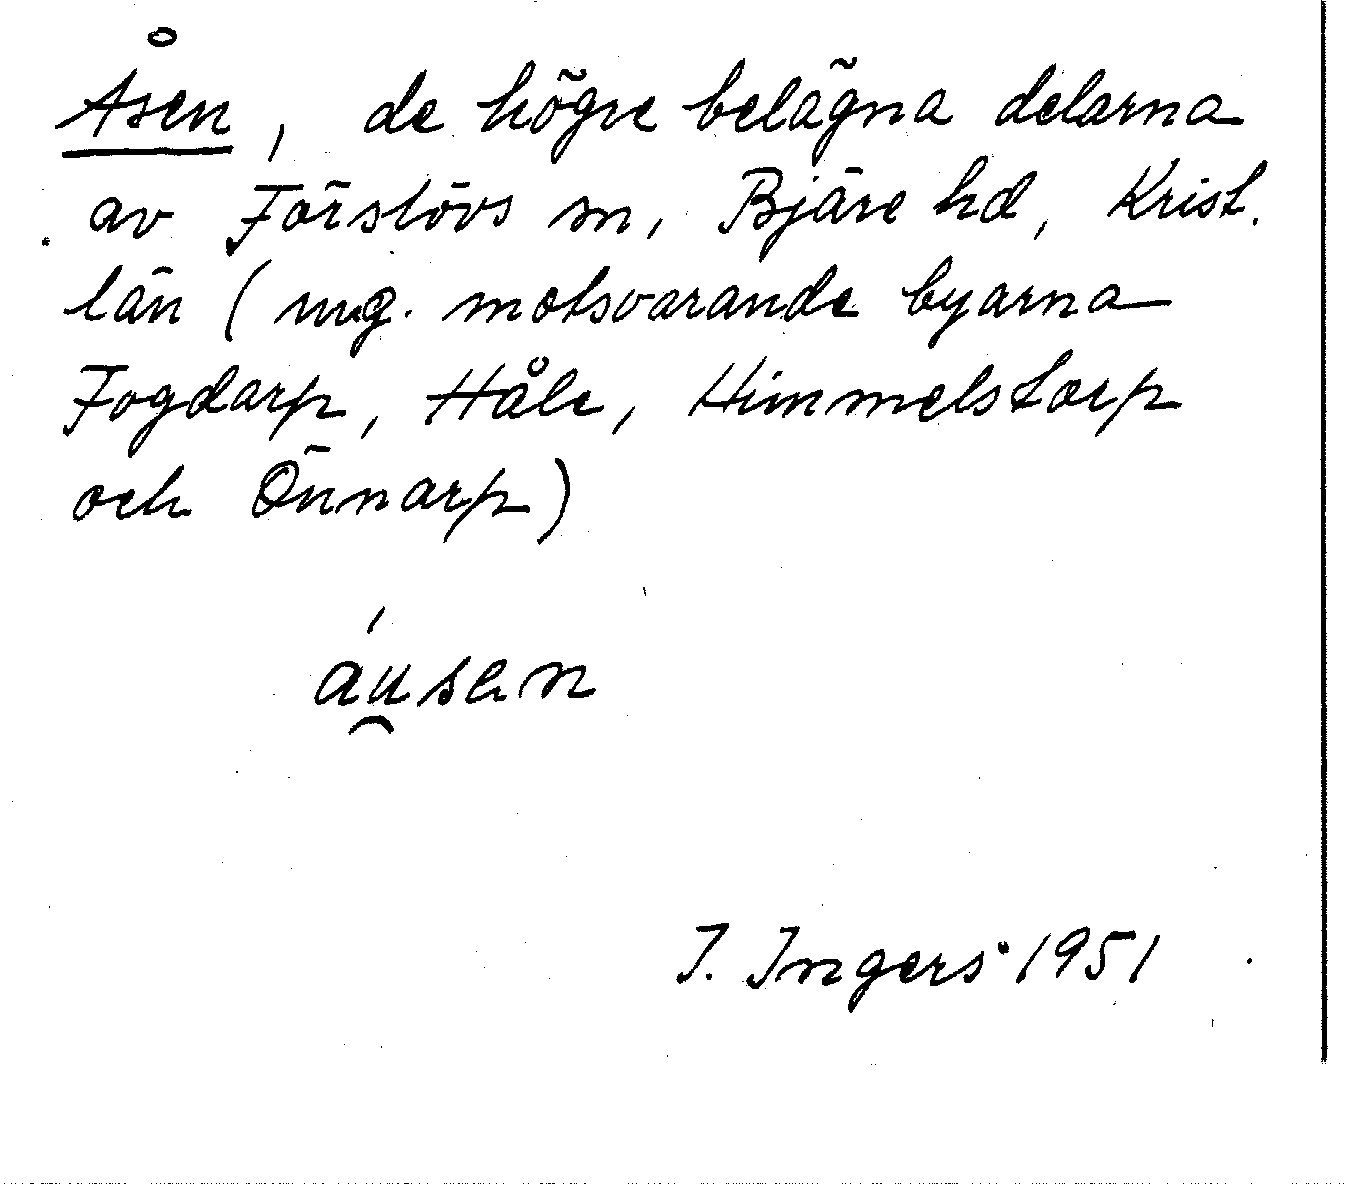 Åsen, de högre belägna delarna
av Förslövs sn, Bjäre hd, Krist.
län (ung. motsvarande byarna
Fogdarp, Håle, Himmelstorp
och Önnarp)
áu̯sen
I. Ingers 1951